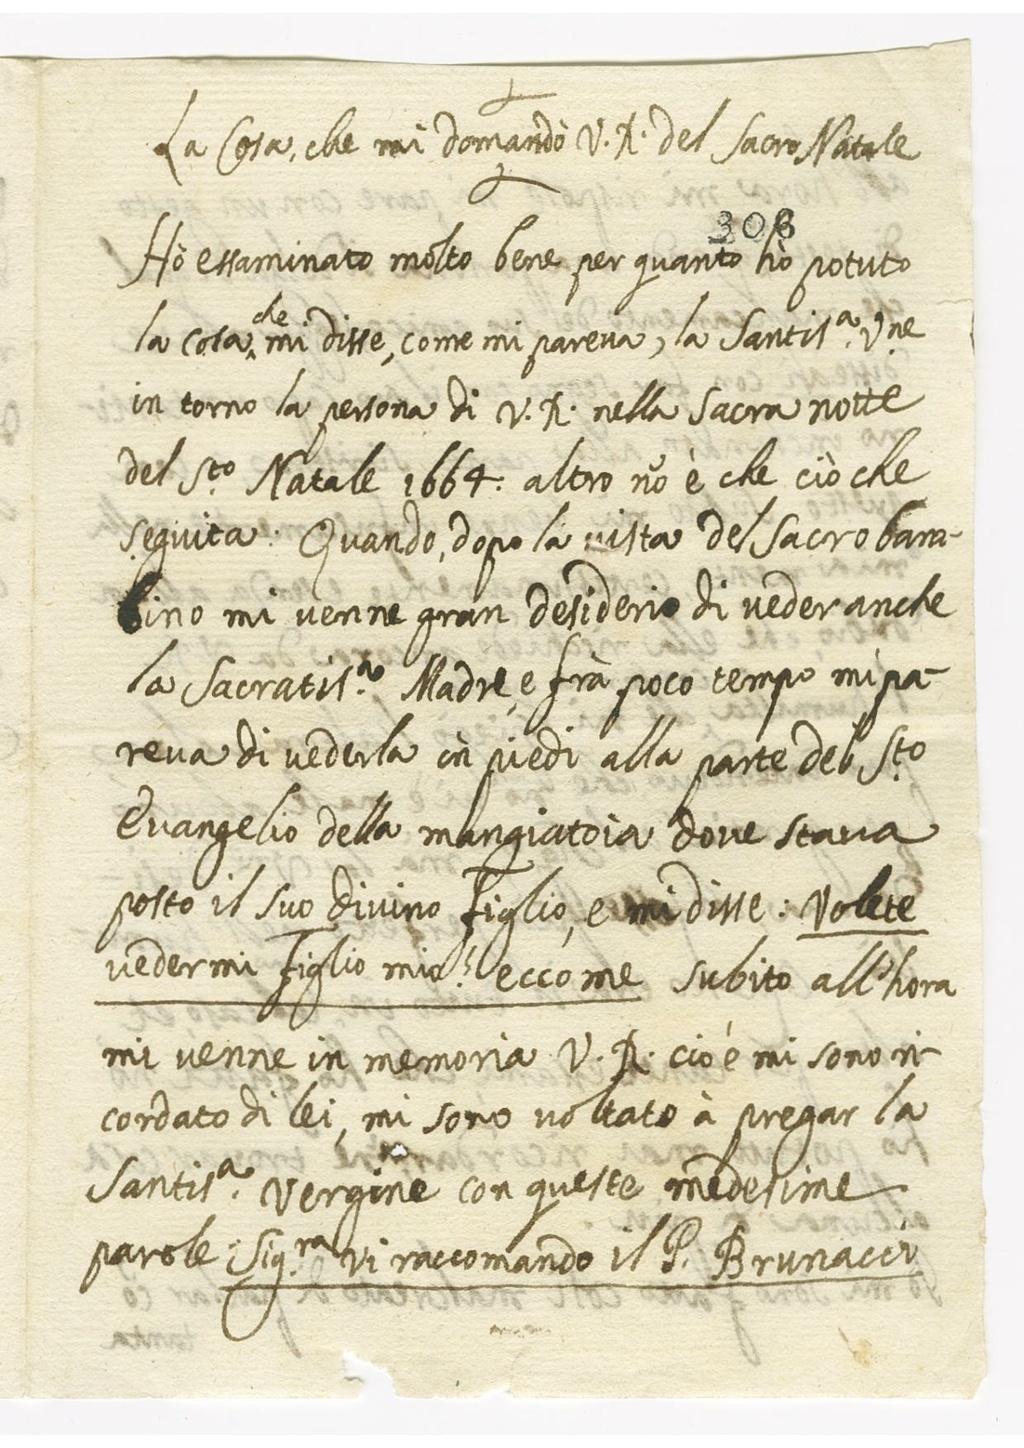 La Cosa, che mi domandò V. R. del Sacro Natale
308
Hò essaminato molto bene per quanto hò potuto
la cosa che mi disse, come mi pareva, la Santis.ª V.ne
in torno la persona di V. R. nella Sacra notte
del S.to Natale 1664: altro nõ è che ciò che
seguita: Quando, dopo la vista del Sacro bam-
bino mi venne gran desiderio di veder anche
la Sacratis.ª Madre, e frà poco tempo mi pa-
reva di vederla in piedi alla parte del S.to
Evangelio della mangiatoia dove stava
posto il suo divino Figlio, e mi disse: Volete
vedermi Figlio mio? eccome subito all'hora
mi venne in memoria V. R. cio è mi sono ri-
cordato di lei, mi sono voltato à pregar la
Santis.ª Vergine con queste medesime
parole: Sig.ra Vi raccomando il P. Brunacci